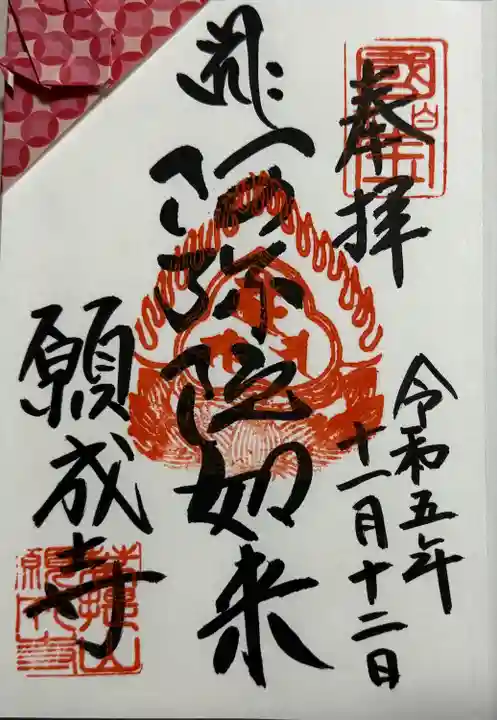 奉拝
令和五年
十一月十二日
阿弥陀如来
願成寺
國宝